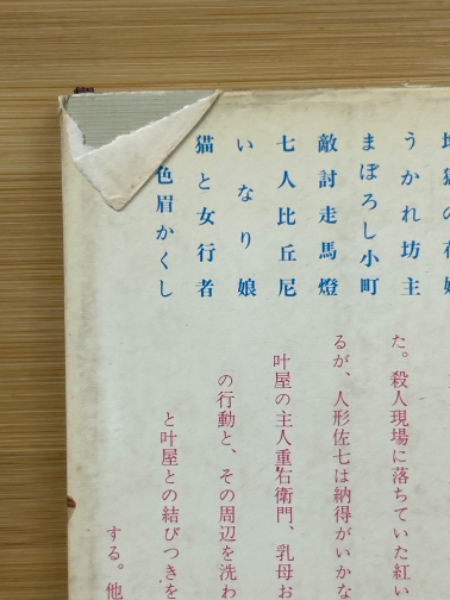 地獄の花嫁
うかれ坊主
まぼろし小町
敵討走馬燈
七人比丘尼
いなり娘
猫と女行者
色眉かくし
た。殺人現場に落ちていた紅い
るが、人形佐七は納得がいかな
叶屋の主人重右衛門、乳母お
の行動と、その周辺を洗わ
と叶屋との結びつきを
する。他